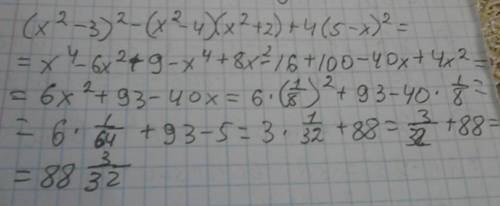 (x²-3)²-(x²-4)(x²+2)+4(5-x)²=
=x⁴-6x²+9-x⁴+8x²-16+100-40x+4x²=
=6x²+93-40x=6·(1/8)²+93-40·1/8=
=6·1/64+93-5=3·1/32+88=3/32+88=
=88 3/32